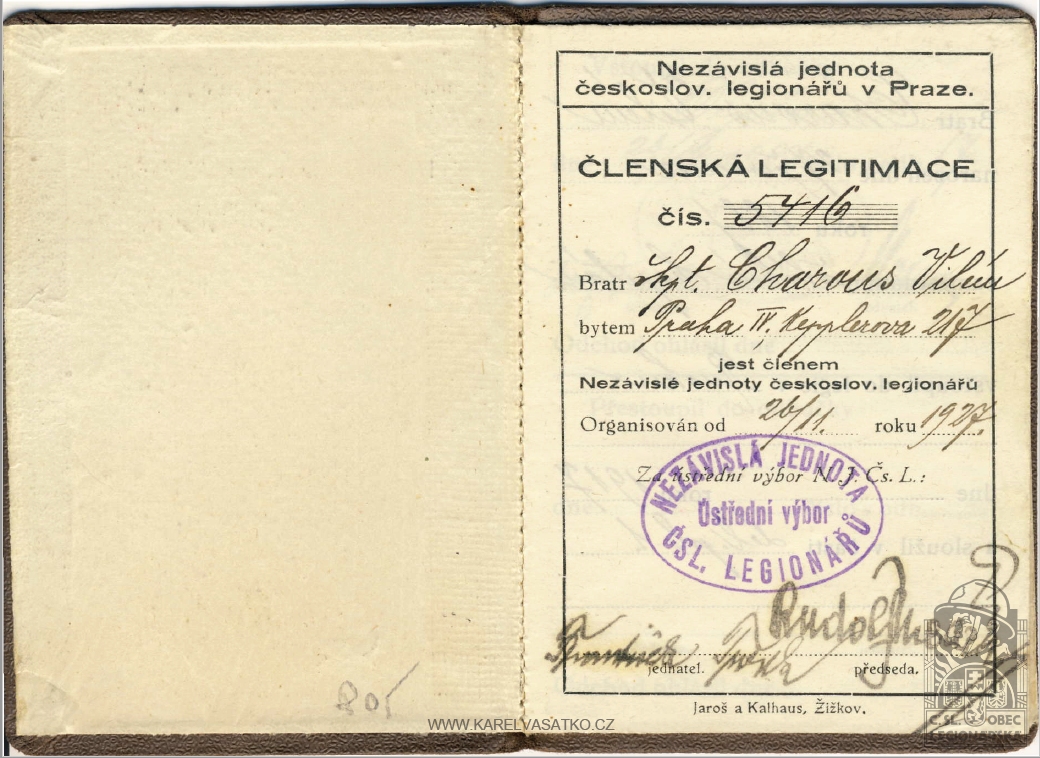 Nezávislá jednota
českoslov. legionářů v Praze.
ČLENSKÁ LEGITIMACE
čís. 5416
Bratr škpt. Charous Vilém
bytem Praha IV. Kepplerova 217
jest členem
Nezávislé jednoty českoslov. legionářů
Organisován od 26/11. roku 1927.
Za ústřední výbor N. J. Čs. L.:
NEZÁVISLÁ JEDNOTA
Ústřední výbor
ČSL. LEGIONÁŘŮ
Rudolf
jednatel. předseda.
Jaroš a Kalhaus, Žižkov.
805
WWW.KARELVASATKO.CZ
Č.SL. OBEC
LEGIONÁŘSKÁ